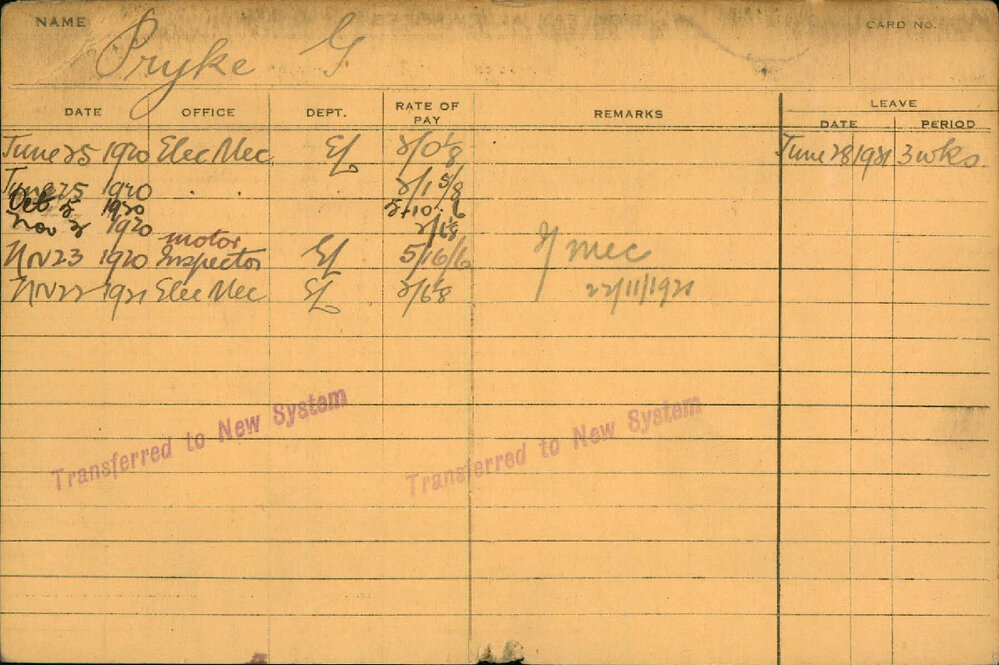 NAME Pryke G. CARD NO.
DATE OFFICE DEPT. RATE OF PAY REMARKS LEAVE
DATE PERIOD
June 25 1920 Elec Mec El 2/0⅛ June 28 1921 3 wks
June 25 1920 . . 2/1 5/8
Oct 5 1920 5-10-6
Nov 2 1920 2/6⅛
motor
Nov 23 1920 Inspector El 5/16/6 Mec
Nov 22 1921 Elec Mec El 2/6⅛ 22/11/1921
Transferred to New System Transferred to New System